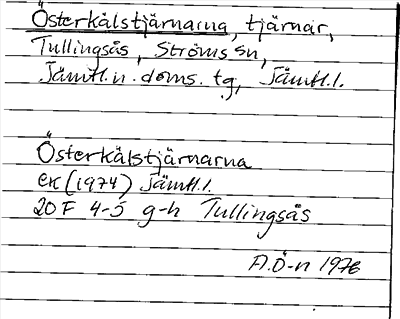 Österkålstjärnarna, tjärnar,
Tullingsås, Ströms sn,
Jämtl. n. doms. tg, Jämtl. l.
Österkälstjärnarna
ek (1974) Jämtl. l.
20 F 4-5 g-h Tullingsås
A.Ö-n 1976